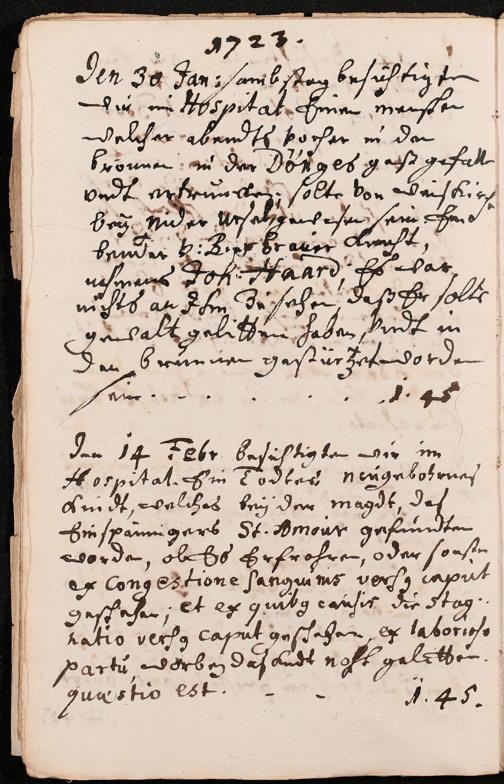 1723.
Den 30 Jan: sambstag besichtigten
wir im Hospital Einen menschen
welcher abendts vorher in den
bronnen in der Dönges gaß gefalle
undt ertruncken, solte von
bey nider Ursel gewesen sein Ein
bender u: Bierbrauer knecht,
nahmens Joh: Haard, Es war
nichts an Ihm zu sehen, daß Er solte
gewalt gelitten haben, Undt in
den brunnen gestürtzet worden
sein. - - . . . . 1. 45
Den 14 Febr. besichtigten wir im
Hospital. Ein Todtes neugebohrnes
kindt, welches bey der magdt, des
Einspännigers St. Amour gefundten
worden, ob Es Erfrohren, oder sonsten
ex Congestione Sanguinis versq caput
geschehen; et ex quibq causis die Stag-
natio versq caput geschehen, ex laborioso
partu, worbey das kindt noht gelitten.
quæstio est. - - 1. 45.